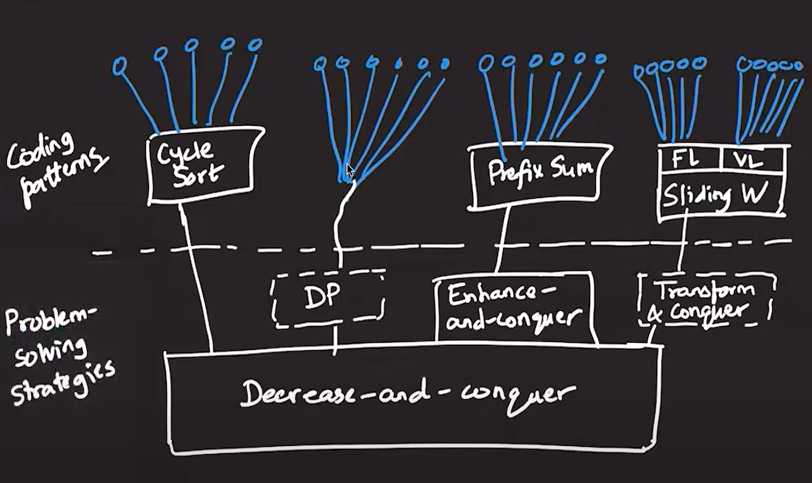 Coding
patterns
Cycle
Sort
Prefix Sum
FL VL
Sliding W
Problem-
solving
strategies
DP
Enhance-
and-conquer
Transform
& Conquer
Decrease-and-conquer